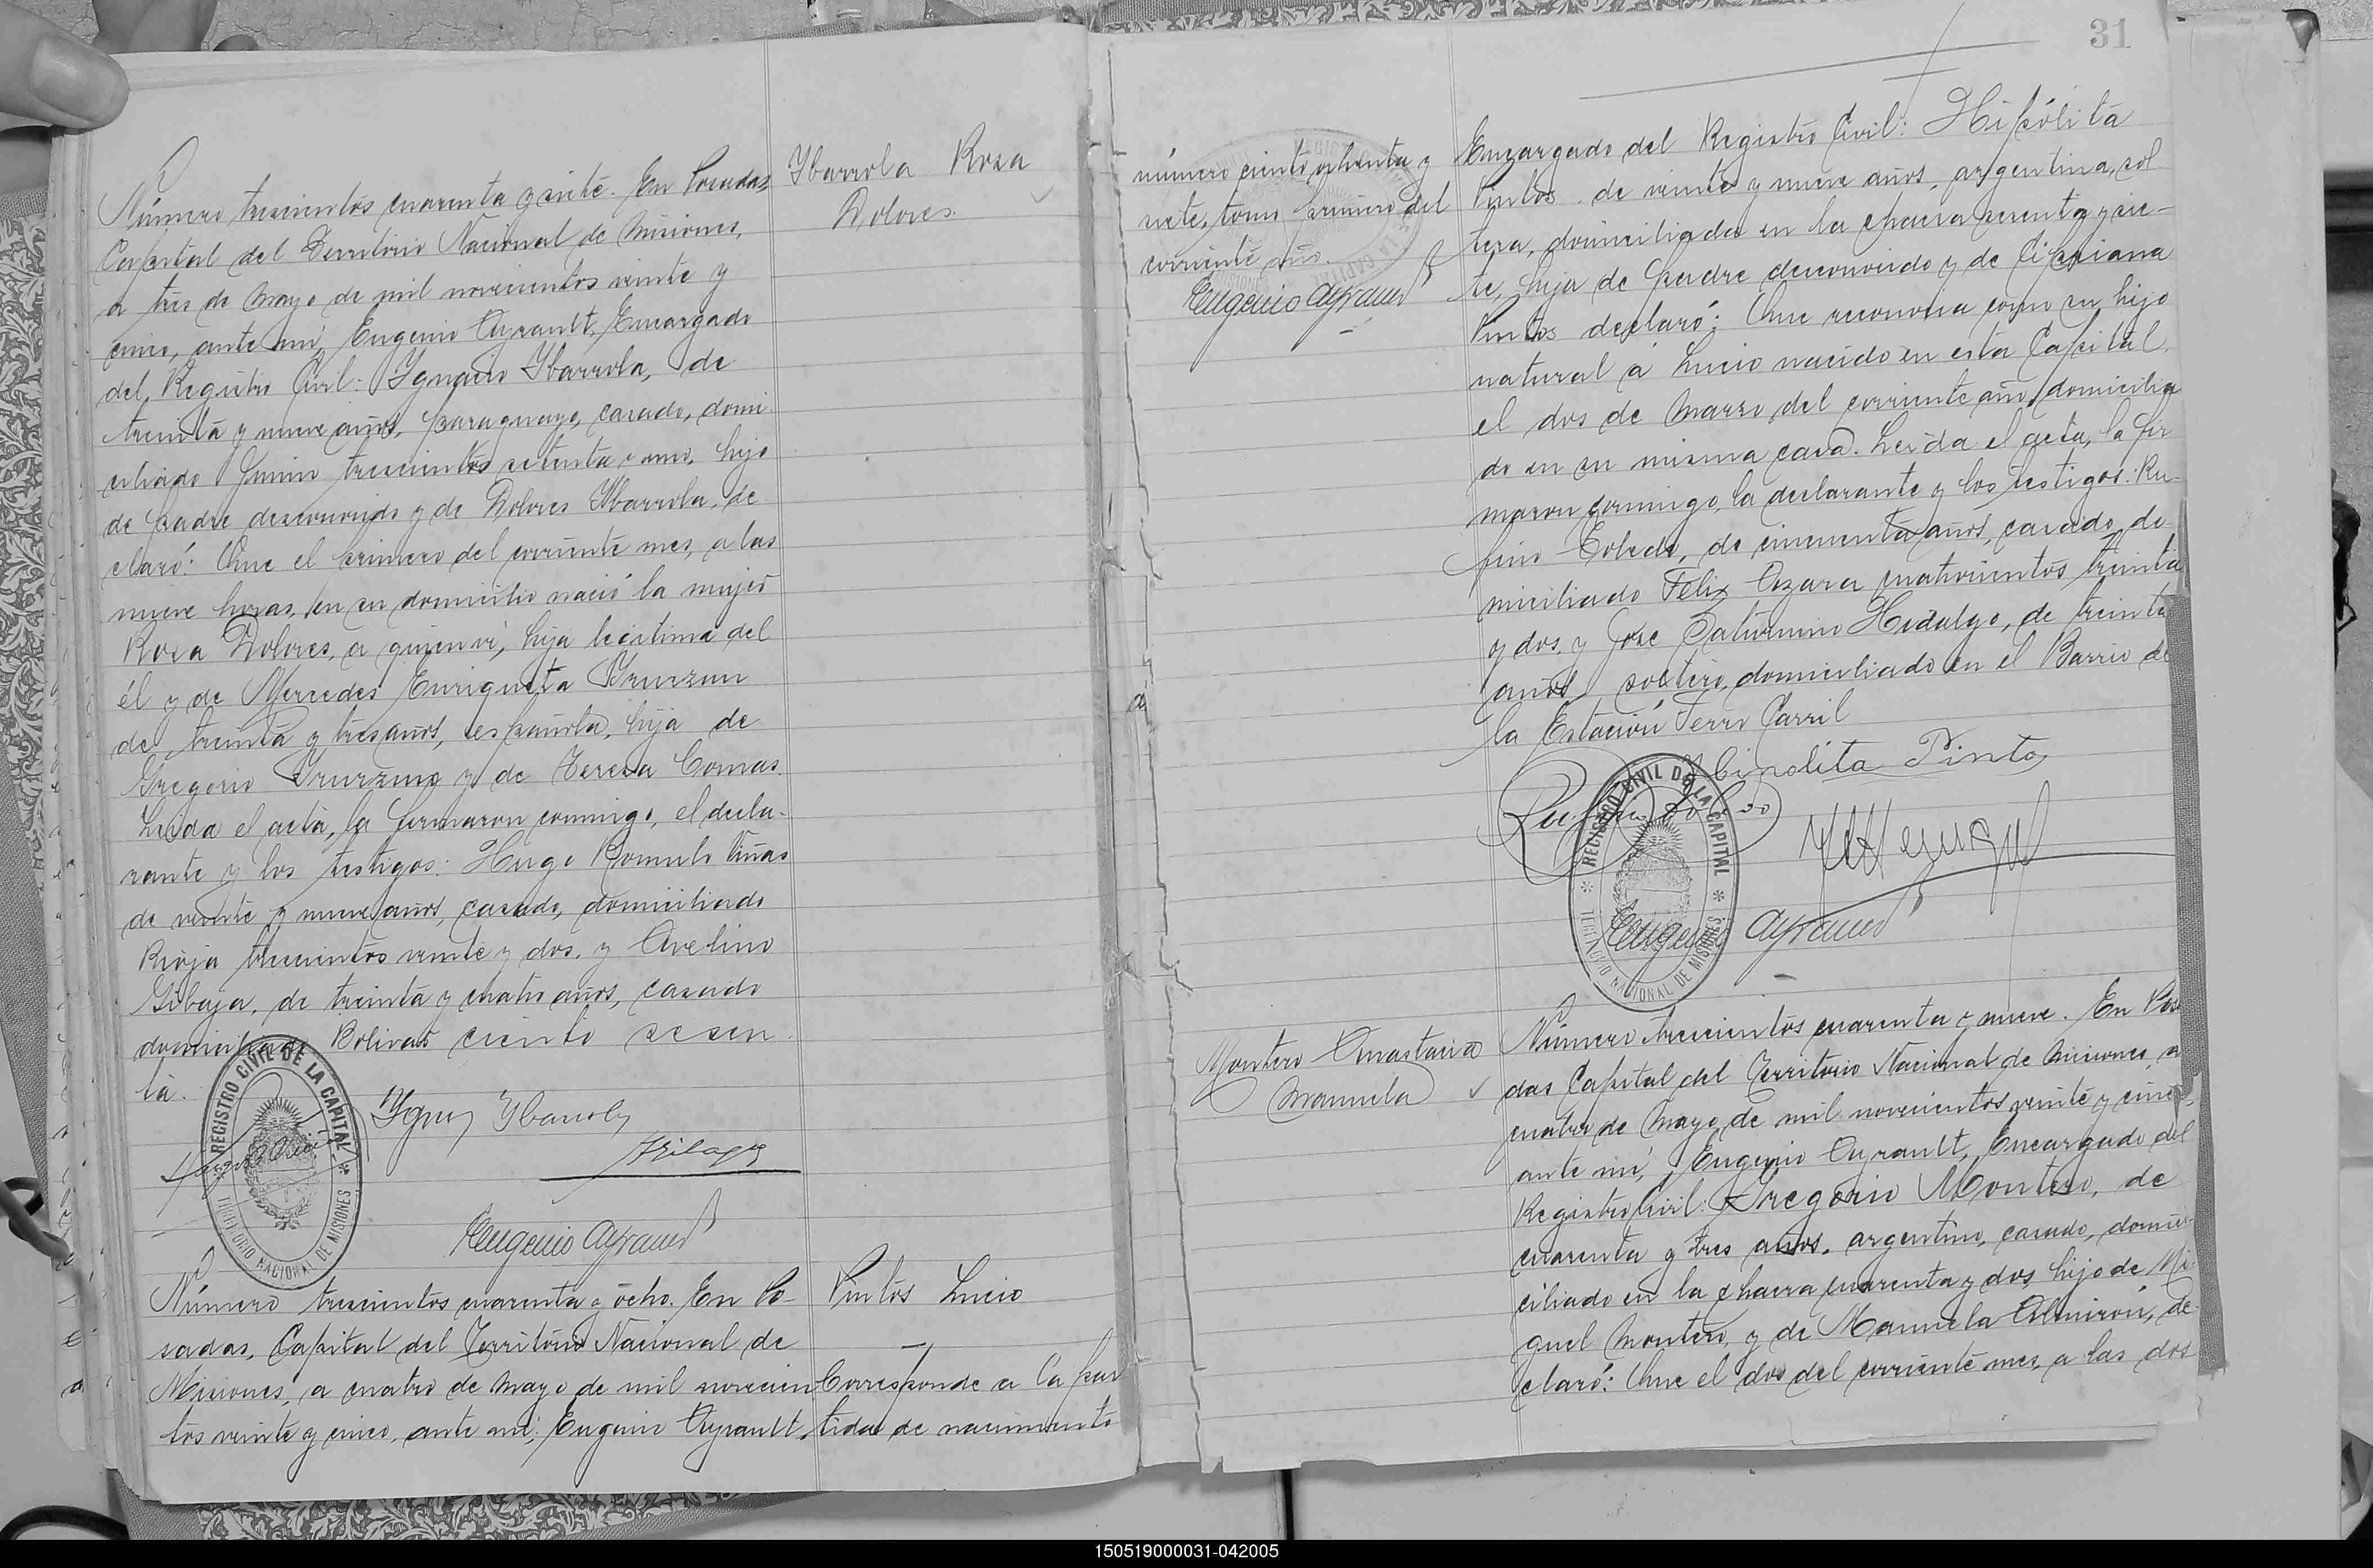 Ybarrola Rosa
Dolores.
Número trescientos cuarenta y siete. En Posadas,
Capital del Territorio Nacional de Misiones,
a tres de Mayo de mil novecientos veinte y
cinco, ante mí, Eugenio Ayrault, Encargado
del Registro Civil: Ygnacio Ybarrola, de
treinta y nueve años, paraguayo, casado, domi-
ciliado Junin trescientos setenta y uno, hijo
de padre desconocido y de Dolores Ybarrola, de
claró: Que el primero del corriente mes, a las
nueve horas, en su domicilio nació la mujer
Rosa Dolores, a quien vi, hija legítima del
él y de Mercedes Enriqueta Yrurzun
de treinta y tres años, española, hija de
Gregorio Yrurzun y de Teresa Comas.
Leida el acta, la firmaron conmigo, el decla-
rante y los testigos: Hugo Romulo Viñas
de veinte y nueve años, casado, domiciliado
Rioja trescientos veinte y dos, y Avelino
Gibaja, de treinta y cuatro años, casado
domiciliado Bolivar ciento sesen-
ta.
Ygno Ybarrola
REGISTRO CIVIL DE LA CAPITAL
TERRITORIO NACIONAL DE MISIONES
Eugenio Ayrault
Pintos Lucio
Corresponde a la par
tida de nacimiento
Número trescientos cuarenta y ocho. En Po-
sadas, Capital del Territorio Nacional de
Misiones, a cuatro de Mayo de mil novecien
tos veinte y cinco, ante mí, Eugenio Ayrault,
31
número ciento ochenta y
siete, tomo primero del
corriente año.
Eugenio Ayrault
Encargado del Registro Civil: Hipólita
Pintos de veinte y nueve años, argentina, sol
tera, domiciliada en la chacra sesenta y sie-
te, hija de padre desconocido y de Cipriana
Pintos declaró: Que reconocia como su hijo
natural á Lucio nacido en esta Capital,
el dos de Marzo del corriente año, domicilia
do en su misma casa. Leida el acta, la fir
maron conmigo, la declarante y los testigos: Ru-
fino Toledo, de cincuenta años, casado, do-
miciliado Félix Azara cuatrocientos treinta
y dos, y José Saturnino Hidalgo, de treinta
años, soltero, domiciliado en el Barrio de
la Estación Ferro Carril
Hipolita Pintos
Rufino Toledo
REGISTRO CIVIL DE LA CAPITAL
TERRITORIO NACIONAL DE MISIONES
Eugenio Ayrault
Montero Anastacia
Manuela
Número trescientos cuarenta y nueve. En Posa
das Capital del Territorio Nacional de Misiones, a
cuatro de Mayo de mil novecientos veinte y cinco,
ante mí, Eugenio Ayrault, Encargado del
Registro Civil: Gregorio Montero, de
cuarenta y tres años, argentino, casado, domi-
ciliado en la chacra cuarenta y dos, hijo de Mi-
guel Montero, y de Manuela Almirón, de-
claró: Que el dos del corriente mes, a las dos
150519000031-042005